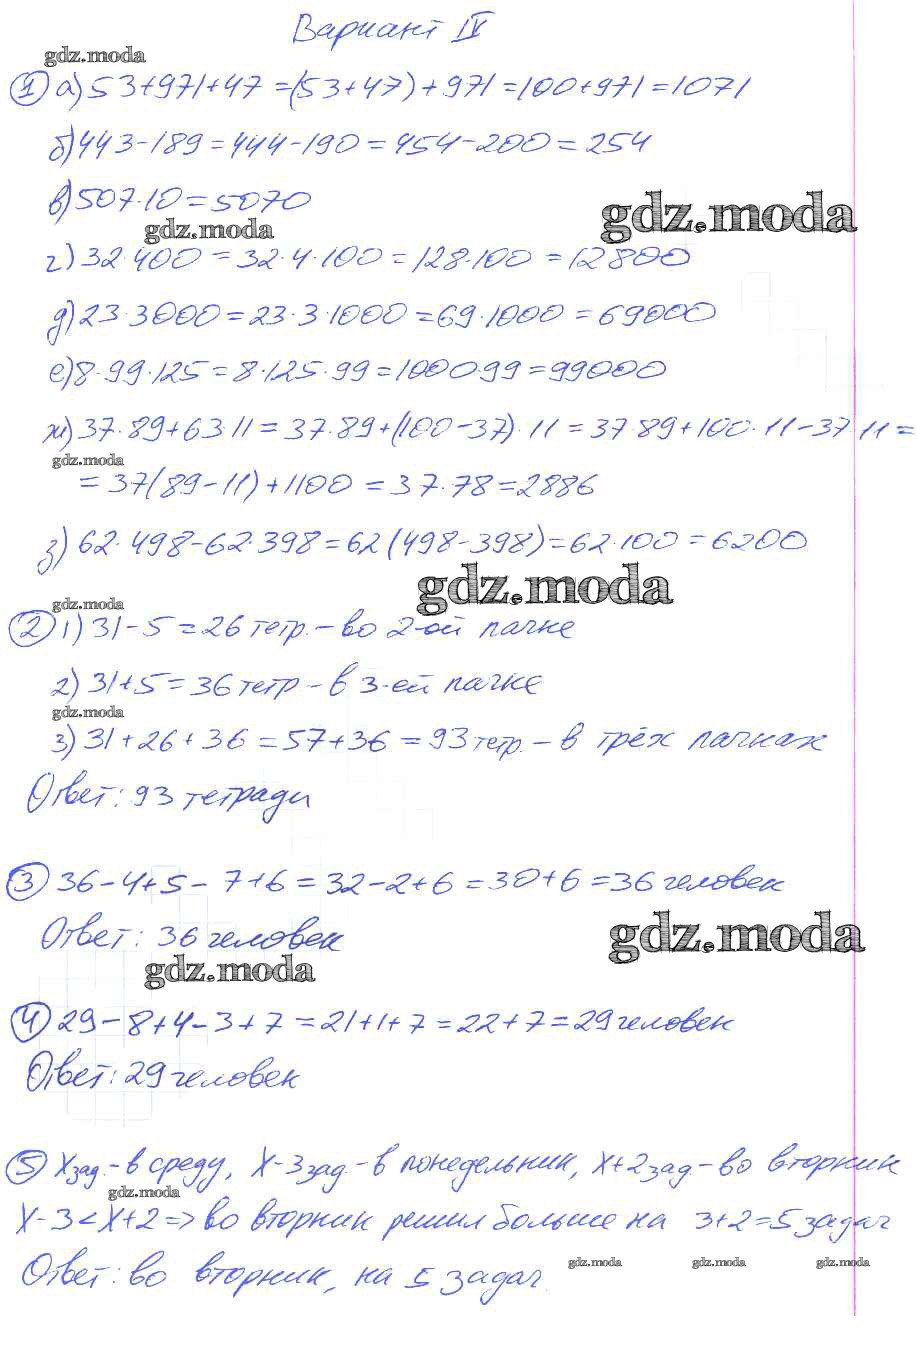 Вариант IV
gdz.moda
① а) 53+971+47=(53+47)+971=100+971=1071
б) 443-189=444-190=454-200=254
в) 507·10=5070
gdz.moda
gdz.moda
г) 32·400=32·4·100=128·100=12800
д) 23·3000=23·3·1000=69·1000=69000
е) 8·99·125=8·125·99=1000·99=99000
ж) 37·89+63·11=37·89+(100-37)·11=37·89+100·11-37·11=
gdz.moda
=37(89-11)+1100=37·78=2886
з) 62·498-62·398=62(498-398)=62·100=6200
gdz.moda
gdz.moda
② 1) 31-5=26 тетр.-во 2-ой пачке
2) 31+5=36 тетр-в 3-ей пачке
gdz.moda
3) 31+26+36=57+36=93 тетр.-в трёх пачках
Ответ: 93 тетради
③ 36-4+5-7+6=32-2+6=30+6=36 человек
Ответ: 36 человек
gdz.moda
gdz.moda
④ 29-8+4-3+7=21+1+7=22+7=29 человек
Ответ: 29 человек
⑤ х зад.-в среду, х-3 зад.-в понедельник, х+2 зад-во вторник
gdz.moda
х-3<х+2=>во вторник решил больше на 3+2=5 задач
Ответ: во вторник, на 5 задач.
gdz.moda gdz.moda gdz.moda